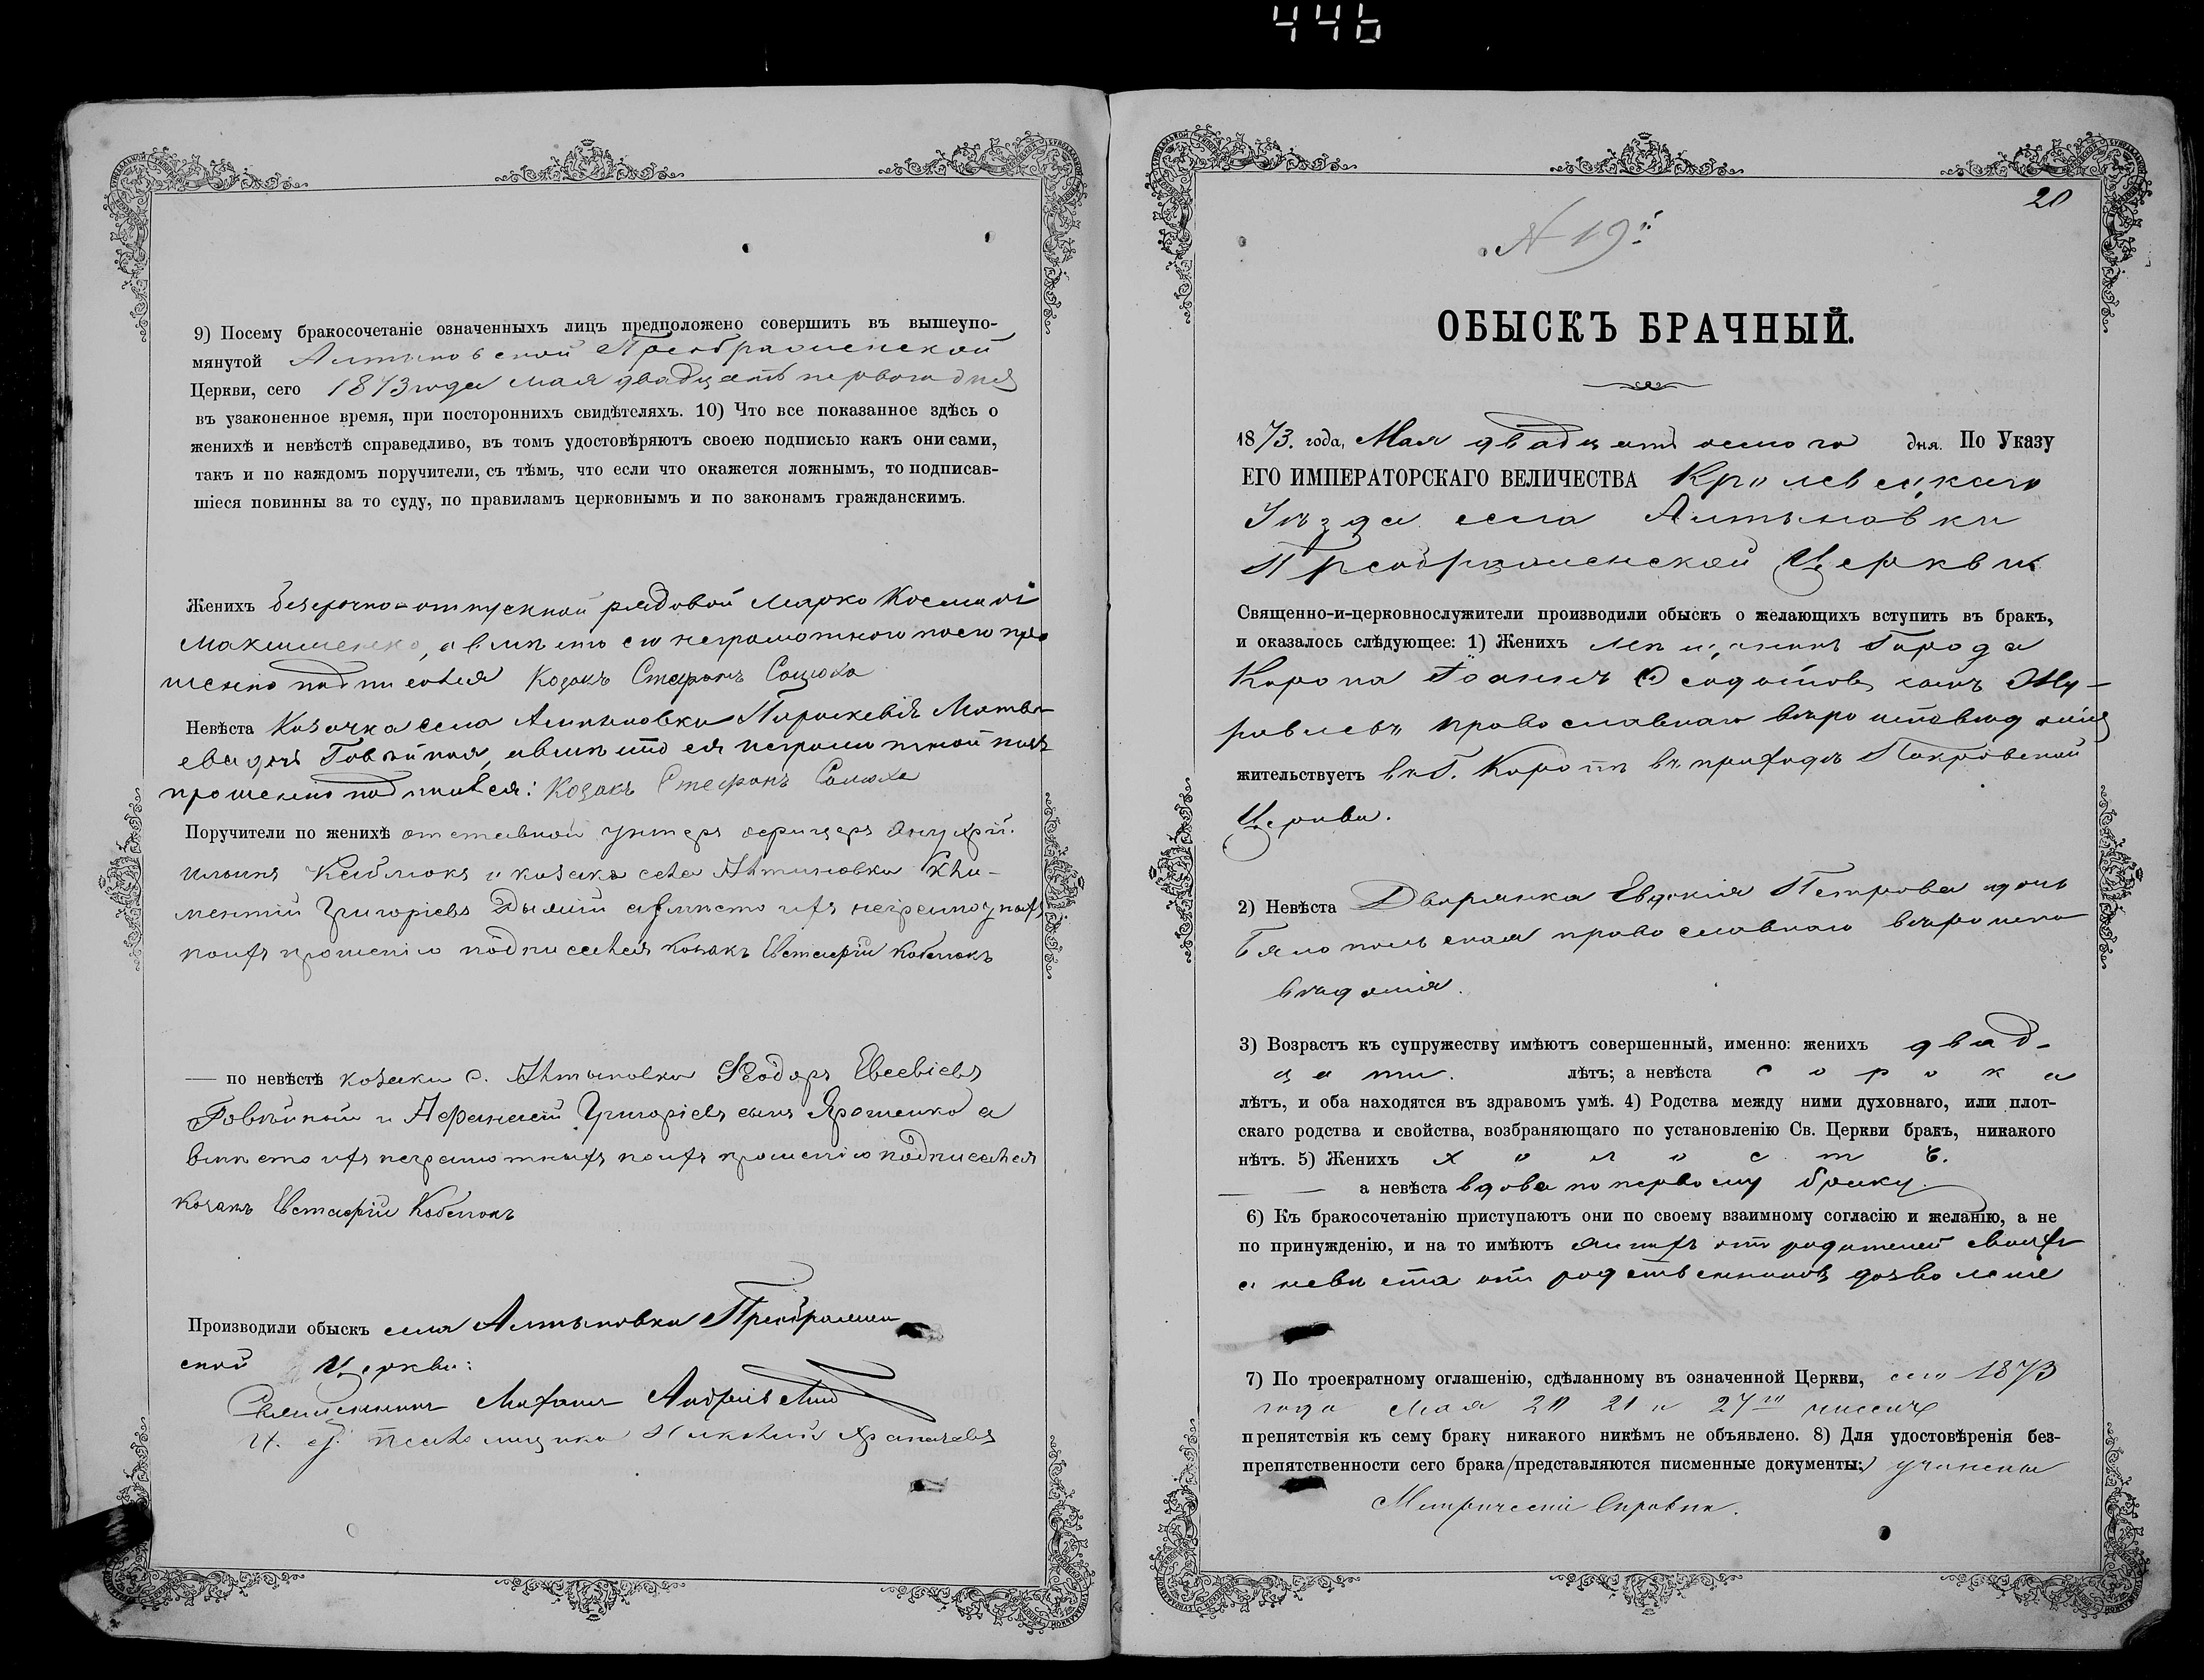 446
9) Посему бракосочетаніе означенныхъ лицъ предположено совершить въ вышеупо-
мянутой Алтыновской Преображенской
Церкви, сего 1873 года мая двадцать первого дня
въ узаконенное время, при постороннихъ свидѣтеляхъ. 10) Что все показанное здѣсь о
женихѣ и невѣстѣ справедливо, въ томъ удостовѣряютъ своею подписью какъ они сами,
такъ и по каждомъ поручители, съ тѣмъ, что если что окажется ложнымъ, то подписав-
шіеся повинны за то суду, по правиламъ церковнымъ и по законамъ гражданскимъ.
Женихъ безсрочно-отпускной рядовой Марко Косминъ
Максименко, а вмѣсто его неграмотного по его про
шенію подписался Козакъ Стефанъ Сацюха
Невѣста Козачка села Алтыновки Параскевія Матвѣ-
ева дочь Говѣйная, а вмѣсто ея неграмотной по ея
прошенію подписался: Козакъ Стефанъ Сацюха
Поручители по женихѣ отставной унтеръ офицеръ Онуфрій
Каблюкъ и козакъ села Алтыновки Кли-
ментій Григоріевъ а вмѣсто ихъ неграмотныхъ
по ихъ прошенію подписался Козакъ Евстафій Кобелюкъ
— по невѣстѣ козаки с. Алтыновки Ѳеодоръ Евсевіевъ
Говѣйный и Афанасій Григоріевъ сынъ Ярошенко а
вмѣсто ихъ неграмотныхъ по ихъ прошенію подписался
Козакъ Евстафій Кобелюкъ
Производили обыскъ села Алтыновки Преображен
ской Церкви:
Священникъ Михаилъ
И. д. псаломщика
20
N 19й
ОБЫСКЪ БРАЧНЫЙ.
1873. года, Мая двадцать осмого дня. По Указу
ЕГО ИМПЕРАТОРСКАГО ВЕЛИЧЕСТВА Кролевецкаго
Уѣзда села Алтыновки
Преображенской Церкви
Священно-и-церковнослужители производили обыскъ о желающихъ вступить въ бракъ,
и оказалось слѣдующее: 1) Женихъ мѣщанинъ Города
Коропа Іоаннъ Ѳеодотовъ сынъ Жу-
равлевъ православнаго вѣроисповѣданія
жительствуетъ въ г. Коропѣ въ приходѣ Покровской
Церкви.
2) Невѣста Дворянка Евдокія Петрова дочь
Бялопольская православнаго вѣроиспо
вѣданія.
3) Возрастъ къ супружеству имѣютъ совершенный, именно: женихъ двад-
цати. лѣтъ; а невѣста сорока
лѣтъ, и оба находятся въ здравомъ умѣ. 4) Родства между ними духовнаго, или плот-
скаго родства и свойства, возбраняющаго по установленію Св. Церкви бракъ, никакого
нѣтъ. 5) Женихъ холостъ.
а невѣста вдова по первому браку.
6) Къ бракосочетанію приступаютъ они по своему взаимному согласію и желанію, а не
по принужденію, и на то имѣютъ женихъ отъ родителей своихъ
а невѣста отъ родственниковъ дозволеніе
7) По троекратному оглашенію, сдѣланному въ означенной Церкви, сего 1873
года мая 20 21 и 27го чиселъ
препятствія къ сему браку никакого никѣмъ не объявлено. 8) Для удостовѣренія без-
препятственности сего брака (представляются писменные документы:) учинены
Метрическіи Справки.